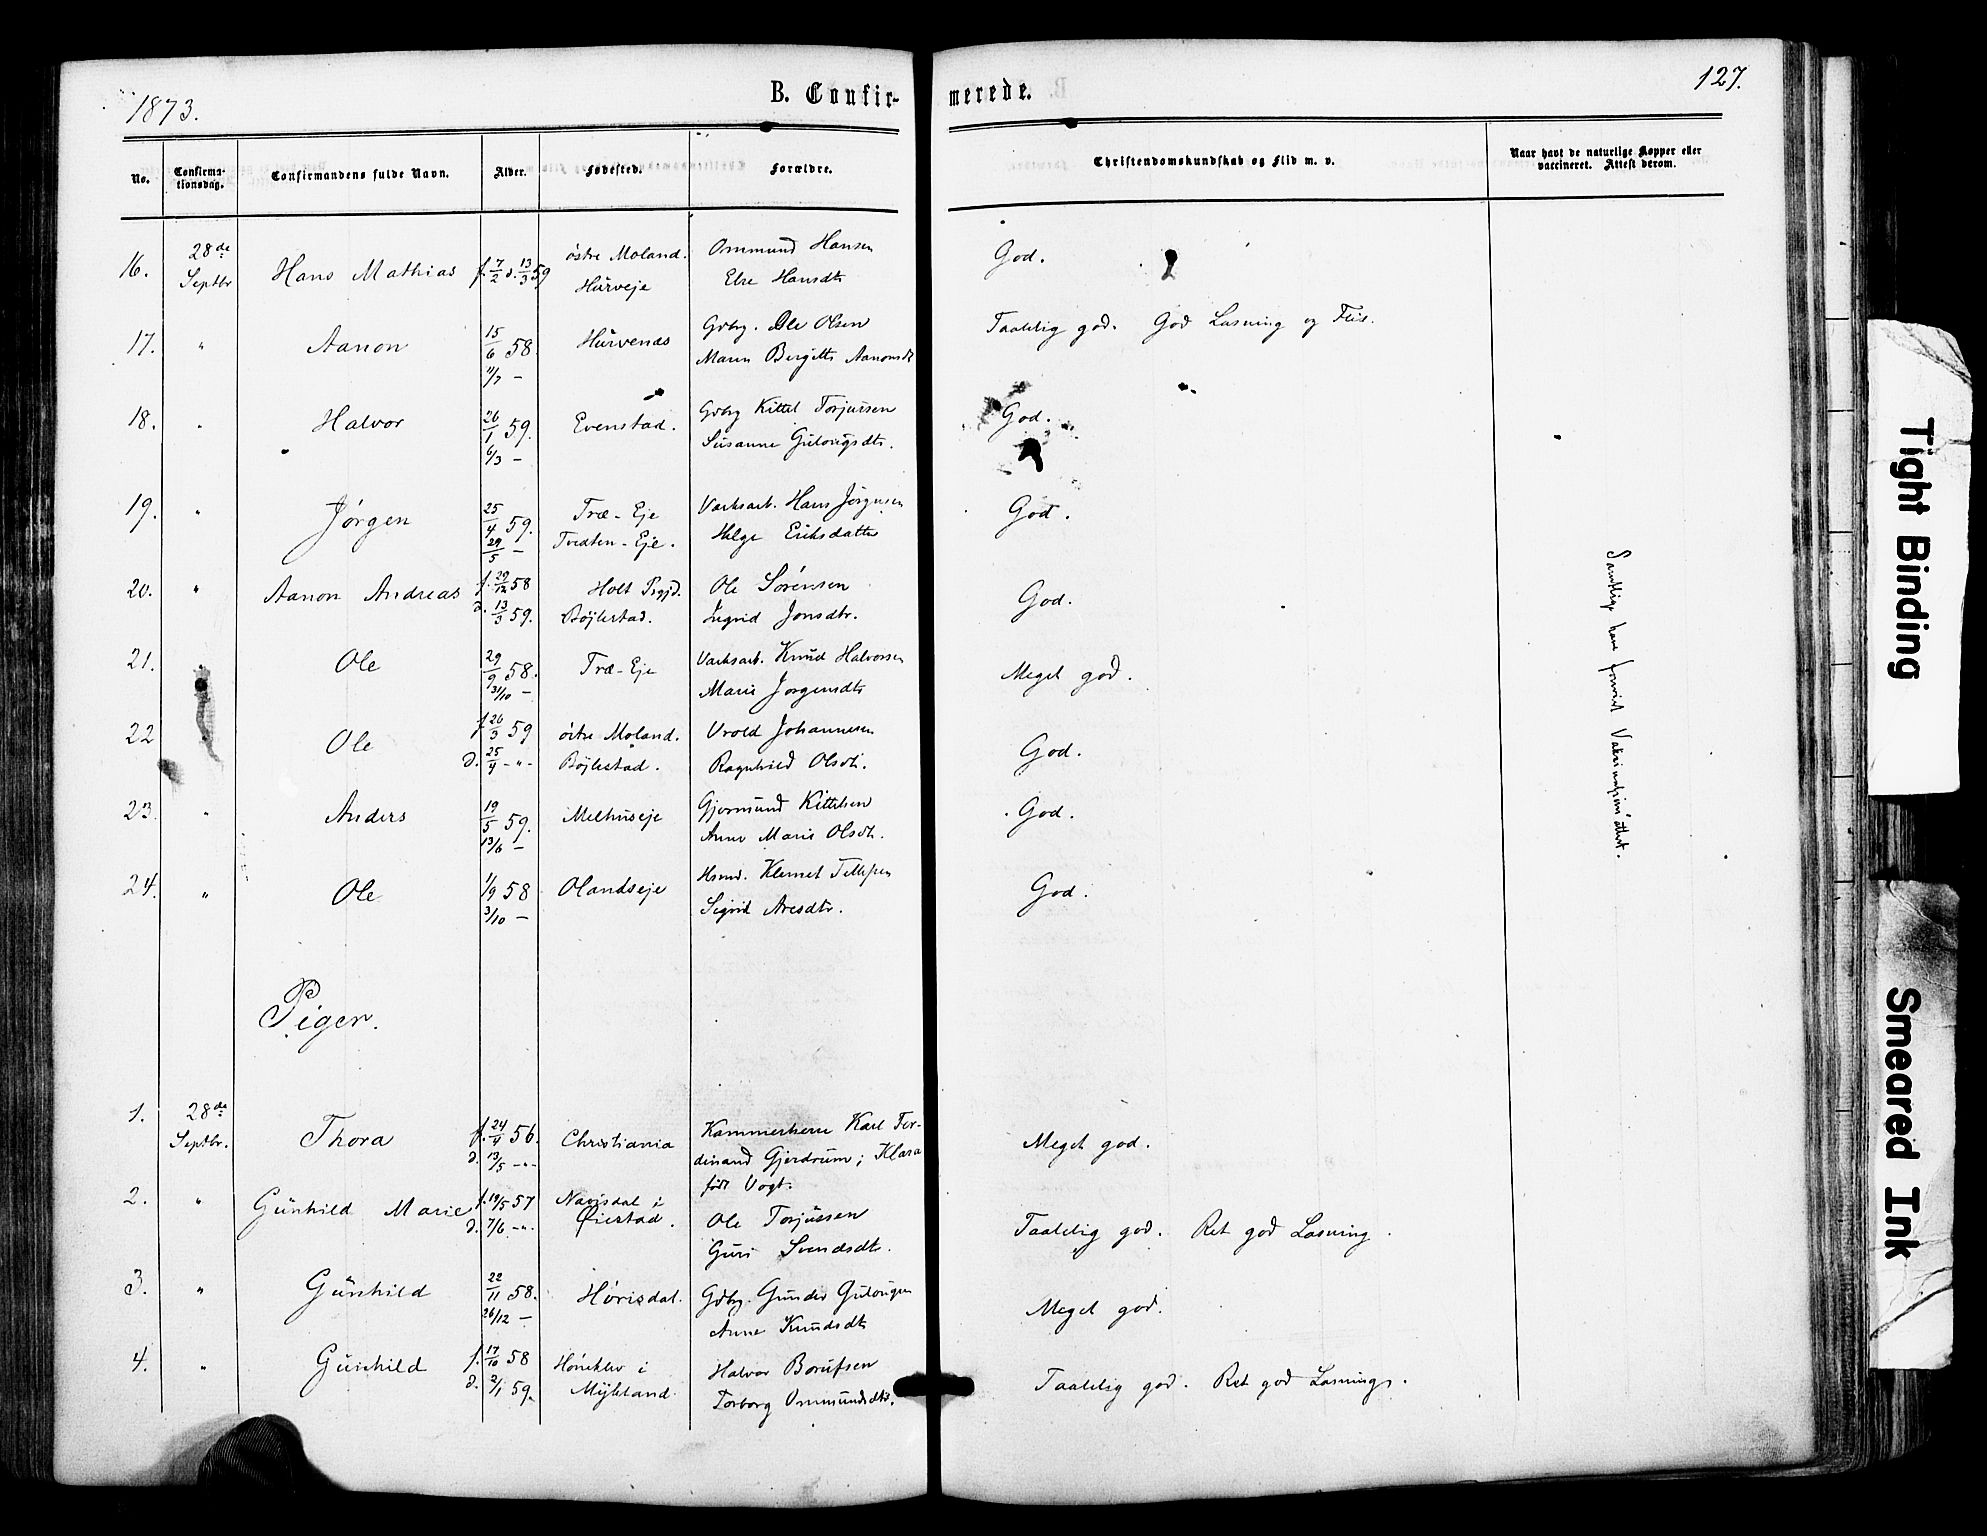 1873.
B. Confir-
merede.
127.
No.
Confirma-
tionsdag.
Confirmandens fulde Navn.
Alder.
Fødested.
Forældre.
Christendomskundskab og Flid m. v.
Naar havt de naturlige Kopper eller
vaccineret. Attest derom.
16. 28de Septbr Hans Mathias f. 7/2 d. 13/3 59 østre Moland. Ommund Hansen God.
Hurveje Else Hansdtr
17. " Aanon 15/6 58. Hurvenæs Gdbr. Ole Olsen Taalelig god. God Læsning og Flid.
11/7 — Maren Birgitte Aanonsdt
18. " Halvor 26/1 59. Evenstad. Gdbr Kittel Torjussen God.
6/3 — Susanne Gulovigsdtr.
19. " Jørgen 25/4 59. Træ-Eje Værksarb. Hans Jørgensen God.
29/5 — Tvedten-Eje. Helge Eriksdatter
20. " Aanon Andreas f. 29/12 58 Holt Prgjd. Ole Sørensen God.
d. 13/3 59. Bøjlestad. Ingrid Jonsdtr.
21. " Ole 29/9 58. Træ-Eje Værksarb. Knud Halvorsen Meget god.
31/10 — Maria Jørgensdtr
22 " Ole f. 26/3 59 østre Moland. Vrold Johannesen God.
d. 25/4 -"- Bøjlestad. Ragnhild Olsdtr.
23. " Anders 19/5 59. Melhuseje Gjermund Kittelsen God.
13/6 — Anne Marie Olsdtr.
24. " Ole 1/9 58 Olandseje Hsmd. Klemet Tellefsen God.
3/10 — Sigrid Aresdtr.
Samtlige have forevist Vakcinationsattest.
Piger.
1. 28de Septbr. Thora f. 24/4 56. Christiania Kammerherre Karl Fer- Meget god.
d. 13/5 -"- dinand Gjerdrum; Klara
født Vogt.
2. " Gunhild Marie f. 19/5 57 Navisdal i Ole Torjussen Taalelig god. Ret god Læsning.
d. 7/6 -"- Øiestad. Guri Svendsdtr.
3. " Gunhild 22/11 58. Hørisdal. Gdbr. Gunder Gulovigsen Meget god.
26/12 — Anne Knudsdtr
4. " Gunhild f. 17/10 58 i Halvor Borufsen Taalelig god. Ret god Læsning.
d. 2/1 59. Mykland. Torborg Ommundsdtr.
Tight Binding
Smeared Ink